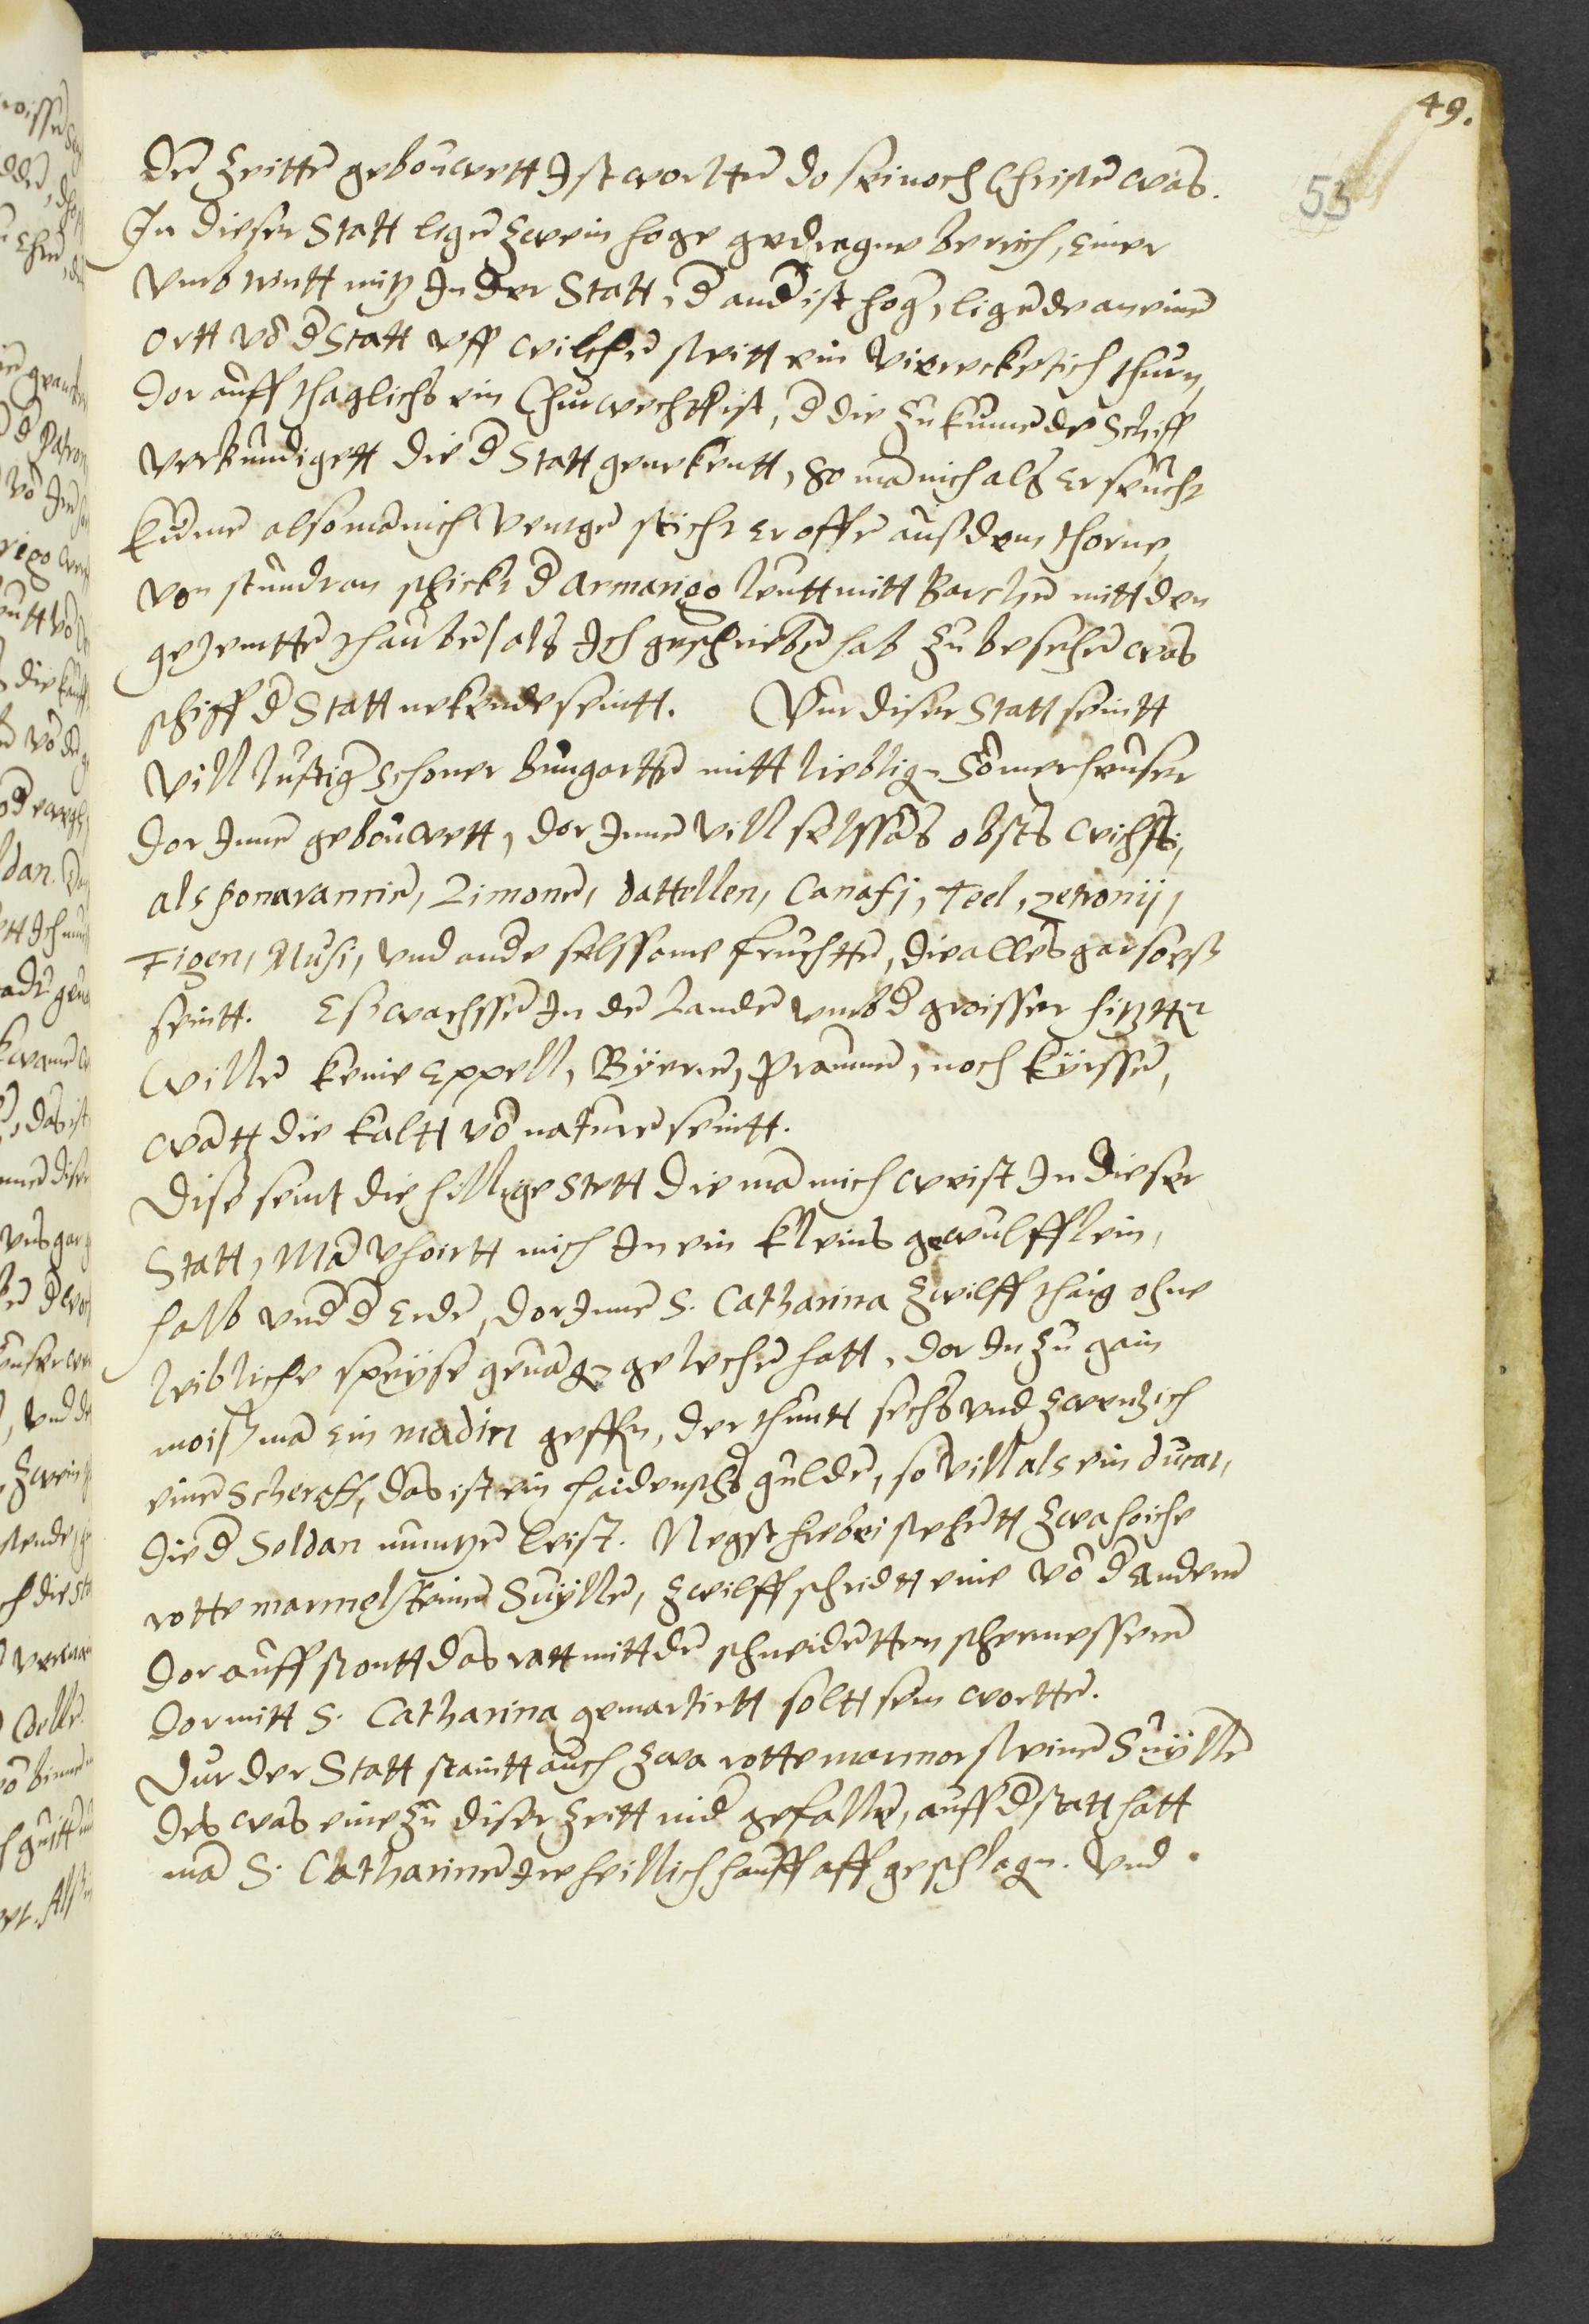 49.
53
den zeitten gebouwett Ist wortten do sei noch Christen was.
In dieser Statt ligen zwein hoge gedragne berich, einer
umbtrintt mitz In der Statt, d and ist hog, ligende an einen
ortt vō d Statt uff wilchen steitt ein viereckettich thurn,
dor auff thaglichs ein Churwechtt ist, d die zukumende Schiff
verkundigett die d Statt geneckentt, so manich als er seucht
kumen also manich ventgen sticht er offen auß dem thorne,
von stundt an schickt d Armarigo leutt mitt Barchen mitt den
gezemtten thauben / als Ich geschrieben hab zu besehen was
schiff d Statt nekende seintt. Vur diser Statt seintt
vill lustig schoner bungartten mitt lieblig Somerheuser
dor Innen gebouwett, dor Innen vill selssas obsts wichst,
als ponarancien, Limonen, dattellen, Canafj, Teel, zetronij,
Figen, Musi, und ande selssame fruchtten, die alles gar soeß
seintt. Eß wachssen In den Landen umb d groisser hitztt
willen keine Eppell, Byeren, Praumen, noch kyrssen,
wātt die kaltt vō naturen seintt.
Dise seint die hillige Stett die mā mich weist In dieser
Statt, Mā vhoirtt mich In ein kleins gewulfflein,
halb und d Erden, dor Innen S. Catharina zwilff thaig ohne
leibliche speyse genāg gelechen hatt, dor In zu gain
moiß mā Ein madin geffen, der thuntt sechs und zwenzich
einen Scheraff, das ist ein heidenschs gulden, so vill als ein ducat,
die d Soldan muntzen leist. Negst hiebei stehentt zwa hoiche
rotte marmelsteinen Suyllen, zwilff schridtt eine vō d anderen
dor auff stontt das ratt mitt den schneidentten schermesseren
dormitt S. Catharina gemartirtt soltt sein wortten.
Vur der Statt staintt auch zwa rotte marmorsteinen Suyllen
des was eine zu diser zeitt nid gefallen, auff d statt hatt
mā S. Catharinen Ire heillich hauff aff geschlagen. Und